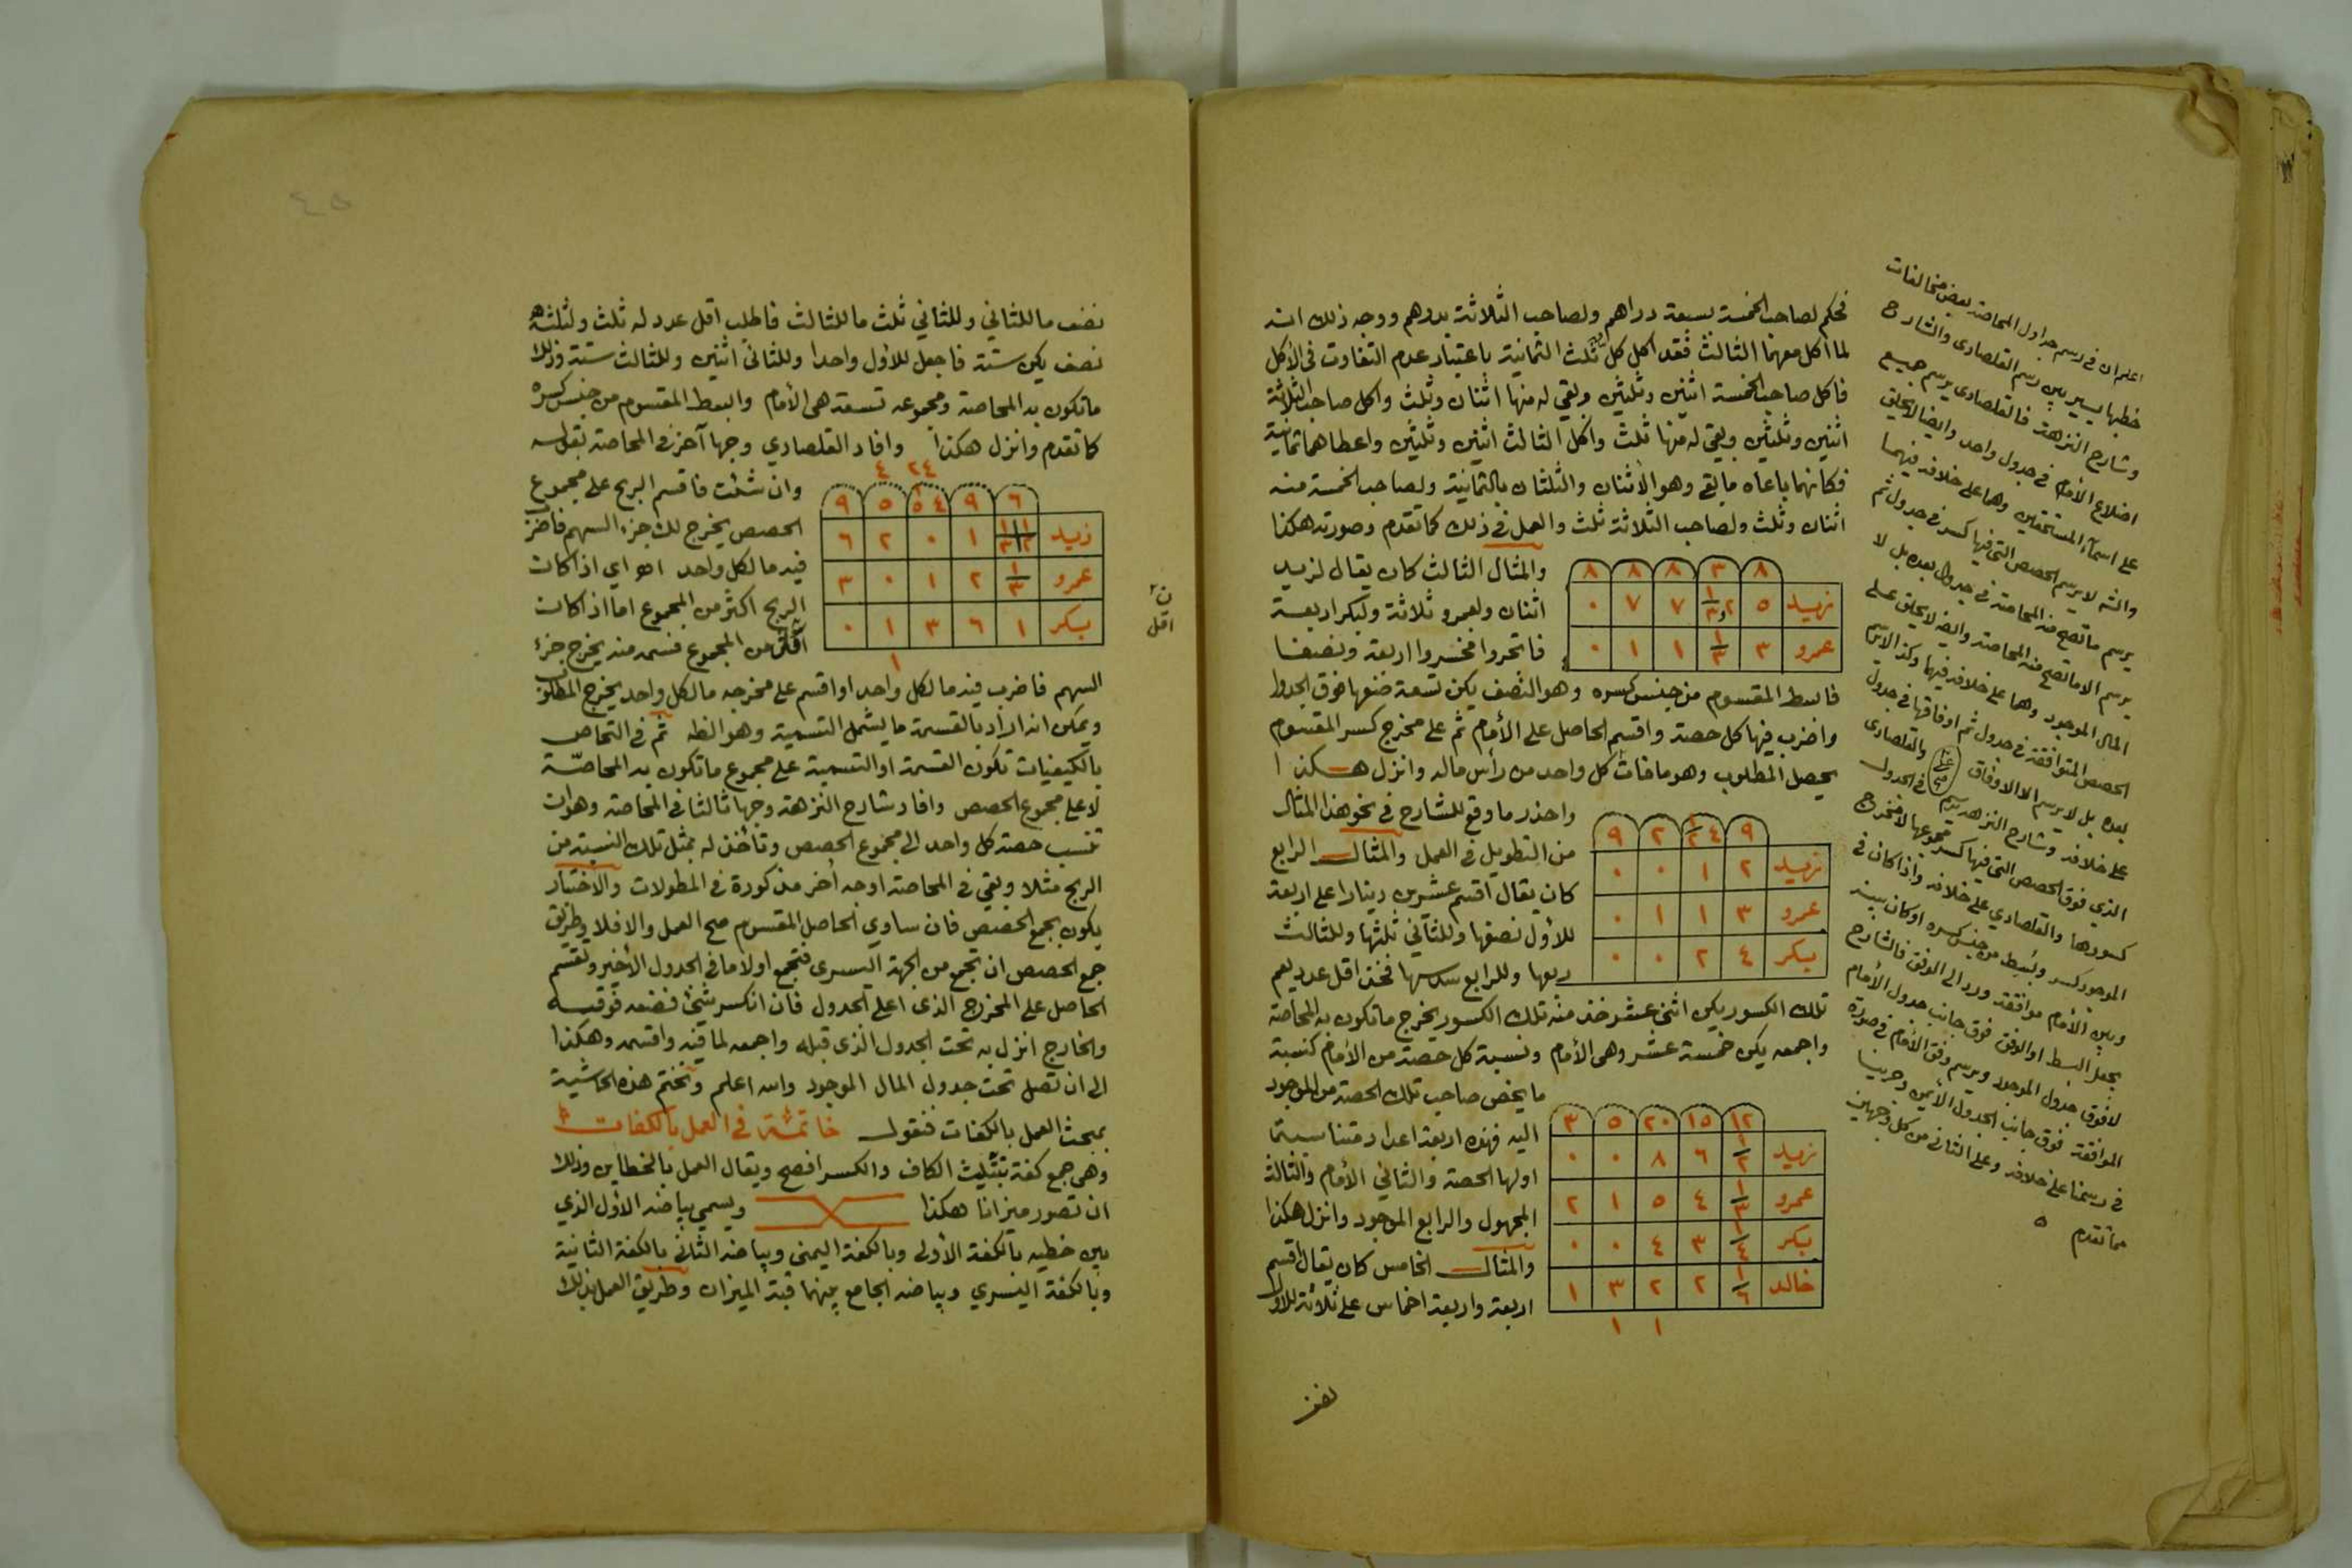 فحكم لصاحب الخمسة بسبعة دراهم ولصاحب الثلاثة بدرهم ووجه ذلك انه
لما اكل معهما الثالث فقد اكل كل ثلث الثمانية باعتبار عدم التفاوت في الأكل
فاكل صاحب الخمسة اثنين وثلثين وبقي له منها اثنان وثلث واكل صاحب الثلاثة
اثنين وثلثين وبقي له منها ثلث واكل الثالث اثنين وثلثين واعطاهما ثمانية
فكانهما باعاه ما بقي وهو الأثنان والثلثان بالثمانية ولصاحب الخمسة منه
اثنان وثلث ولصاحب الثلاثة ثلث والعمل في ذلك كما تقدم وصورته هكذا
والمثال الثالث كان يقال لزيد
اثنان ولعمرو ثلاثة ولبكر اربعة
فاتجروا فخسروا اربعة ونصفا
٨ ٣ ٨ ٨ ٨
زيد ٥ ٢و ١/٣ ٧ ٧ ٠
عمرو ٣ ١/٣ ١ ١ ٠
فابسط المقسوم من جنس كسره وهو النصف يكن تسعة ضعها فوق الجدول
واضرب فيها كل حصة واقسم الحاصل على الأمام ثم على مخرج كسر المقسوم
يحصل المطلوب وهو ما فات كل واحد من رأس ماله وانزل هكذا
واحذر ما وقع للشارح في نحو هذا المثال
من التطويل في العمل والمثال الرابع
كان يقال اقسم عشرين دينارا على اربعة
للأول نصفها وللثاني ثلثها وللثالث
ربعها وللرابع سدسها فخذ اقل عدد يعم
٩ ٤ ١/٢ ٢ ٩
زيد ٢ ١ ٠ ٠
عمرو ٣ ١ ١ ٠
بكر ٤ ٢ ٠ ٠
تلك الكسور يكن اثني عشر خذ منه تلك الكسور يخرج ما تكون به المحاصة
واجمعه يكن خمسة عشر وهي الأمام ونسبة كل حصة من الأمام كنسبة
ما يخص صاحب تلك الحصة من الموجود
اليه فهذه اربعة اعداد متناسبة
اولها الحصة والثاني الأمام والثالث
المجهول والرابع الموجود وانزل هكذا
والمثال الخامس كان يقال اقسم
اربعة واربعة اخماس على ثلاثة للأول
١٢ ١٥ ٢٠ ٥ ٣
زيد ١/٢ ٦ ٨ ٠ ٠
عمرو ١/٣ ٤ ٥ ١ ٢
بكر ١/٤ ٣ ٤ ٠ ٠
خالد ١/٦ ٢ ٢ ٣ ١
١ ١
نصف
اعلم ان في رسم جداول المحاصة بعض مخالفات
خطبها يسير بين رسم القلصادي والشارح
وشارح النزهة فالقلصادي يرسم جميع
اضلاع الأمام في جدول واحد وايضا لا يحلق
على اسماء المستحقين وهما على خلافه فيهما
وانه لا يرسم الحصص التي فيها كسر في جدول ثم
يرسم ما تصح منه المحاصة في جدول بعده بل لا
يرسم الا ما تصح منه المحاصة وايضا لا يحلق على
المال الموجود وهما على خلافه فيهما وكذا لا يرسم
الحصص المتوافقة في جدول ثم اوفاقها في جدول
بعده بل لا يرسم الا الاوفاق والقلصادي
على خلافه وشارح النزهة يرسم في الجدول
الذي فوق الحصص التي فيها كسر مجموعها لا مخرج
كسورها والقلصادي على خلافه واذا كان في
الموجود كسر وبسط من جنس كسره او كان بينه
وبين الأمام موافقة ورد الى الوفق فالشارح
يجعل البسط او الوفق فوق جانب جدول الأمام
لا فوق جدول الموجود ويرسم وفق الأمام في صورة
الموافقة فوق جانب الجدول الأيمن وجرينا
في رسمنا على خلافه وعلى الثاني من كل وجهين
مما تقدم ٥
نصف ما للثاني وللثاني ثلث ما للثالث فاطلب اقل عدد له ثلث ولثلثه
نصف يكن ستة فاجعل للأول واحدا وللثاني اثنين وللثالث ستة وذلك
ما تكون به المحاصة ومجموعه تسعة هي الأمام وابسط المقسوم من جنس كسره
كما تقدم وانزل هكذا وافاد القلصادي وجها آخر في المحاصة بقوله
وان شئت فاقسم الربح على مجموع
الحصص يخرج لك جزء السهم فاضرب
فيه ما لكل واحد اهـ اي اذا كان
الربح اكثر من المجموع اما اذا كان
اقل من المجموع فسمه منه يخرج جزء
٢٤ ٤
٦ ٩ ٤ ١/٥ ٥ ٩
زيد ١ ٠ ٢ ٦
عمرو ١/٣ ٢ ١ ٠ ٣
بكر ١ ٦ ٣ ١ ٠
١
ن
اقل
السهم فاضرب فيه ما لكل واحد او اقسم على مخرجه ما لكل واحد يخرج المطلوب
ويمكن انه اراد بالقسمة ما يشمل التسمية وهو الظ ثم في التحاص
بالكيفيات تكون القسمة او التسمية على مجموع ما تكون به المحاصة
لا على مجموع الحصص وافاد شارح النزهة وجها ثالثا في المحاصة وهو ان
تنسب حصة كل واحد الى مجموع الحصص وتأخذ له بمثل تلك النسبة من
الربح مثلا وبقي في المحاصة اوجه اخر مذكورة في المطولات والاختبار
يكون بجمع الحصص فان ساوى الحاصل المقسوم صح العمل والا فلا وطريق
جمع الحصص ان تجمع من الجهة اليسرى فتجمع اولا ما في الجدول الأخير وتقسم
الحاصل على المخرج الذي اعلى الجدول فان انكسر شيئ فضعه فوقه
والخارج انزل به تحت الجدول الذي قبله واجمعه لما فيه واقسمه وهكذا
الى ان تصل تحت جدول المال الموجود والله اعلم ونختم هذه الحاشية
بمبحث العمل بالكفات فنقول خاتمة في العمل بالكفات
وهي جمع كفة بتثليث الكاف والكسر افصح ويقال العمل بالخطاين وذلك
ان تصور ميزانا هكذا ويسمي بياضه الأول الذي
بين خطيه بالكفة الأولى وبالكفة اليمنى وبياضه الثاني بالكفة الثانية
وبالكفة اليسرى وبياضه الجامع بينهما قبة الميزان وطريق العمل بذلك